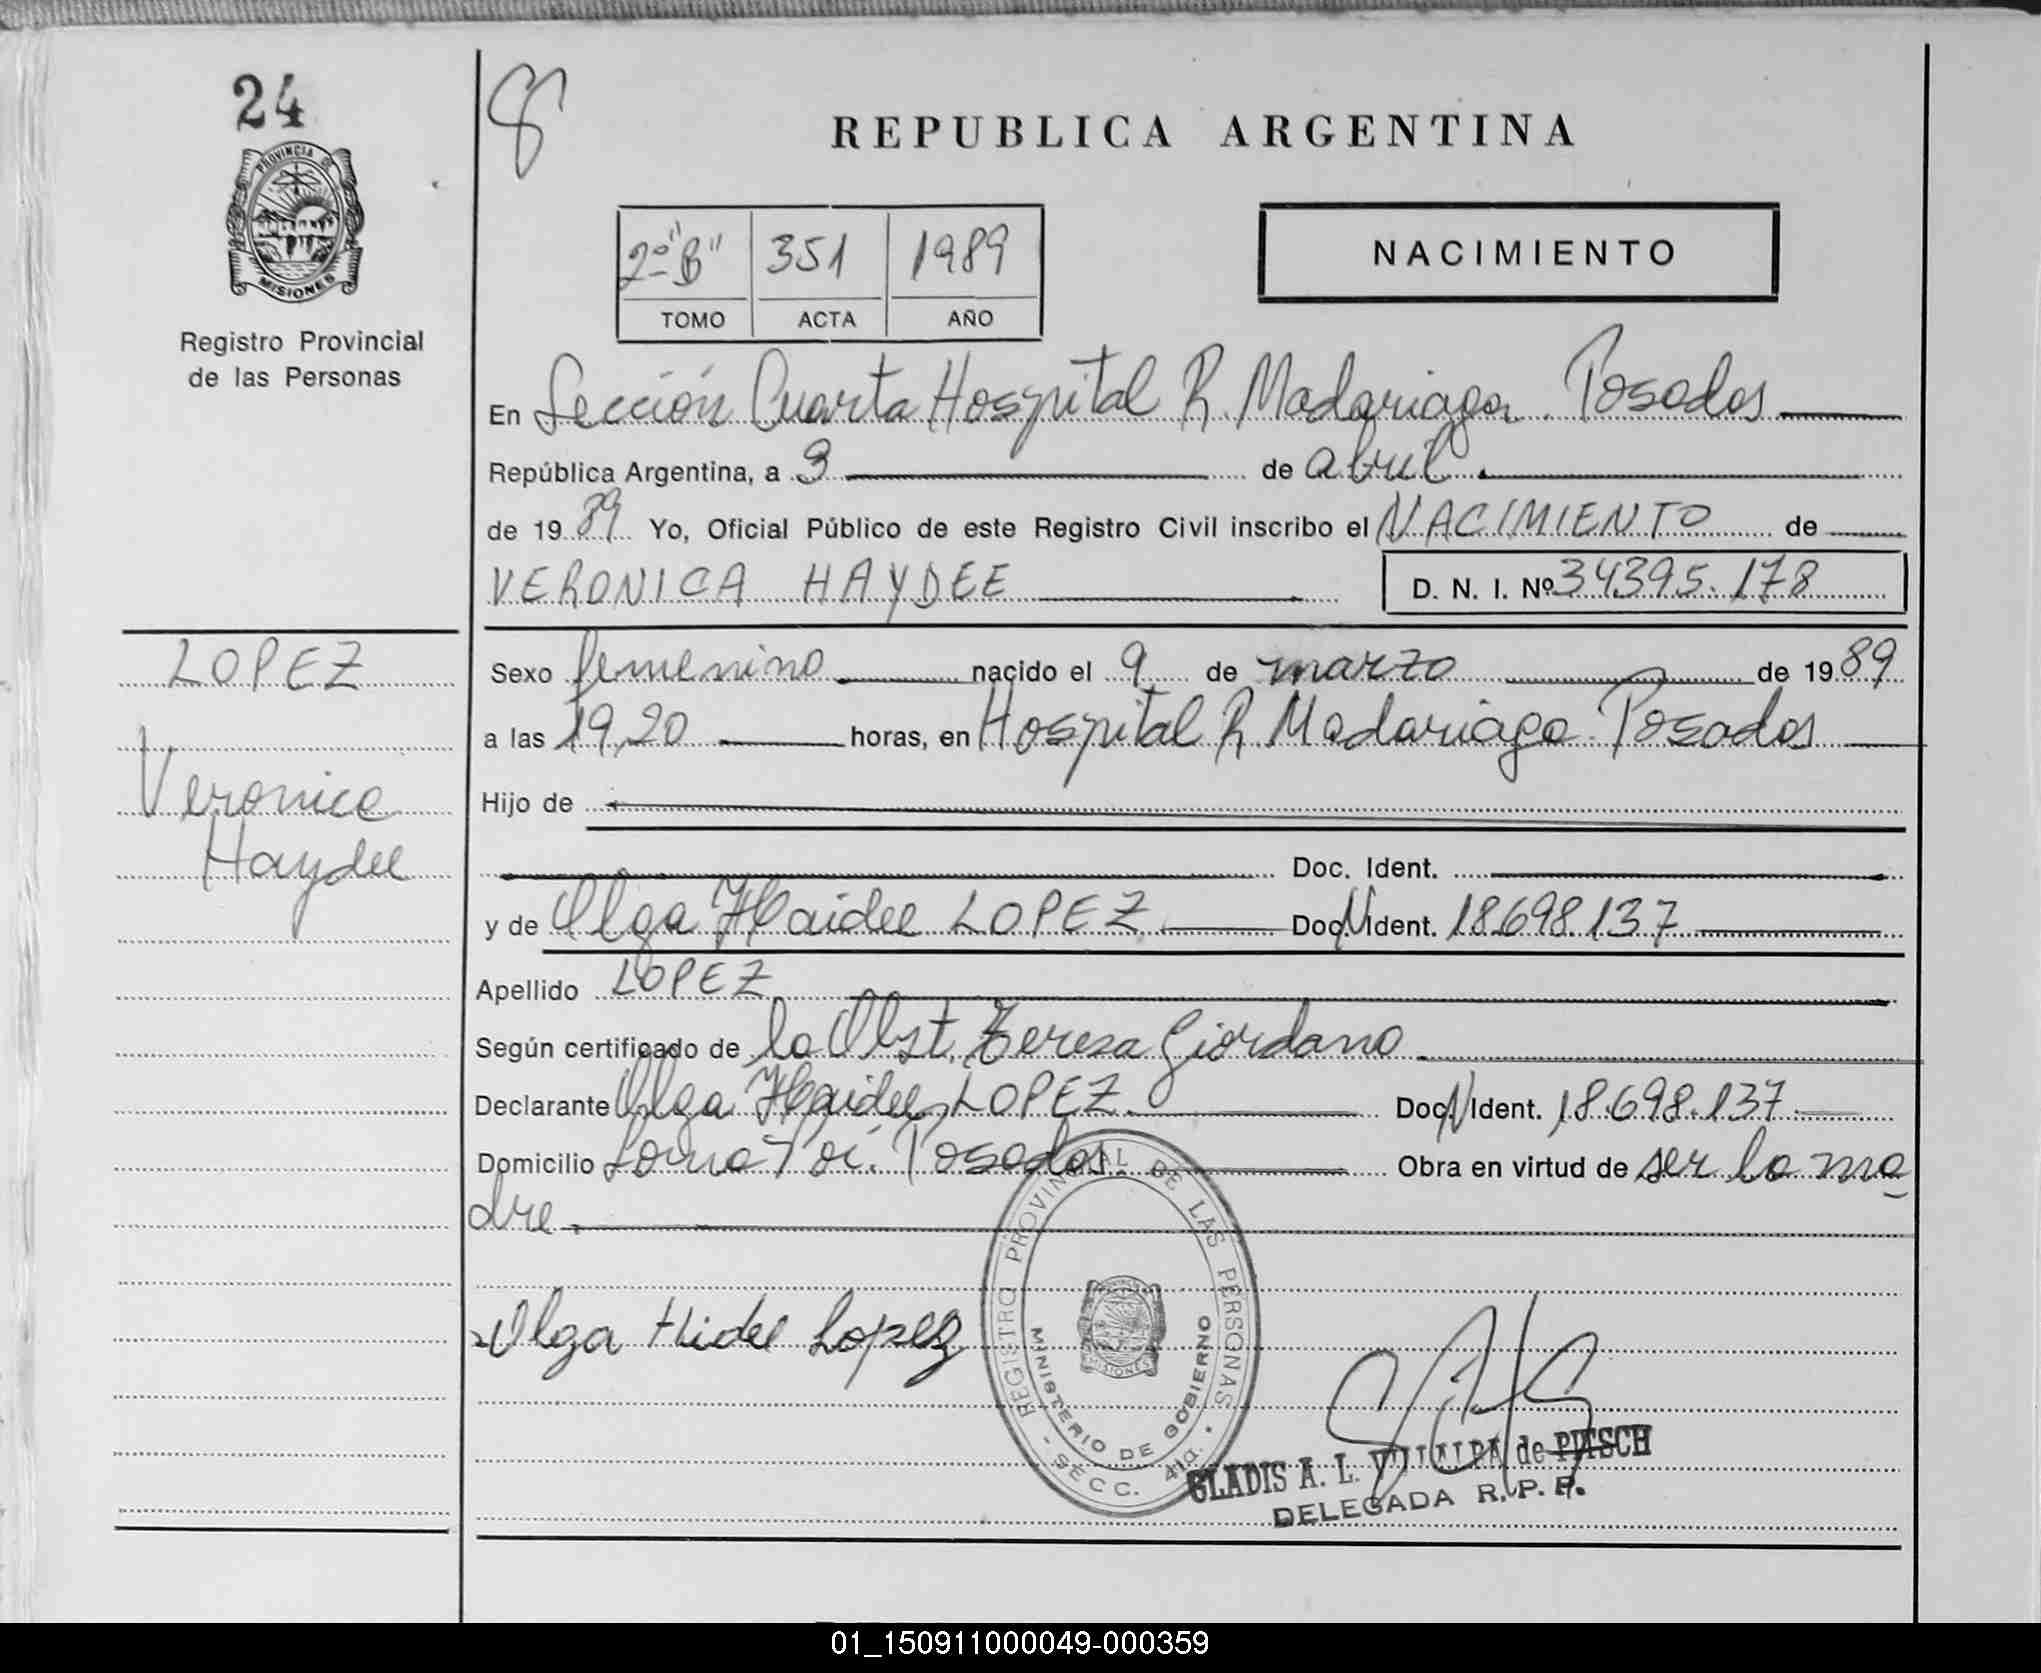 24
8
REPUBLICA ARGENTINA
PROVINCIA DE
MISIONES
Registro Provincial
de las Personas
2º "B" 351 1989
TOMO ACTA AÑO
NACIMIENTO
En Sección Cuarta Hospital R. Madariaga. Posadas
República Argentina, a 3 de abril
de 1989 Yo, Oficial Público de este Registro Civil inscribo el NACIMIENTO de
VERONICA HAYDEE D. N. I. Nº 34395.178
LOPEZ
Veronica
Haydee
Sexo femenino nacido el 9 de marzo de 1989
a las 19,20 horas, en Hospital R. Madariaga. Posadas
Hijo de
Doc. Ident.
y de Olga Haidee LOPEZ Doc. N Ident. 18.698.137
Apellido LOPEZ
Según certificado de la Obst. Teresa Giordano
Declarante Olga Haidee LOPEZ Doc. N Ident. 18.698.137
Domicilio Loma Poi. Posadas. Obra en virtud de ser la ma
dre.
Olga Hidee Lopez
REGISTRO PROVINCIAL DE LAS PERSONAS
MINISTERIO DE GOBIERNO
MISIONES
- SECC. 4ta. -
GLADIS A. L. VILLALBA de PITSCH
DELEGADA R. P. P.
01_150911000049-000359